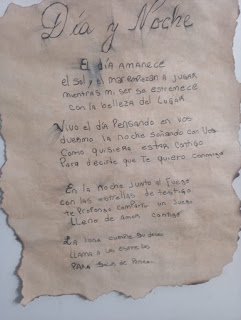 Día y Noche
El día amanece
el sol y el mar empiezan a jugar
mientras mi ser se estremece
con la belleza del lugar
Vivo el día pensando en vos
duermo la noche soñando con vos
Como quisiera estar contigo
Para decirte que te quiero conmigo
En la noche junto al fuego
con las estrellas de testigo
te propongo compartir un juego
lleno de amor contigo
La luna
llama a las estrellas
para